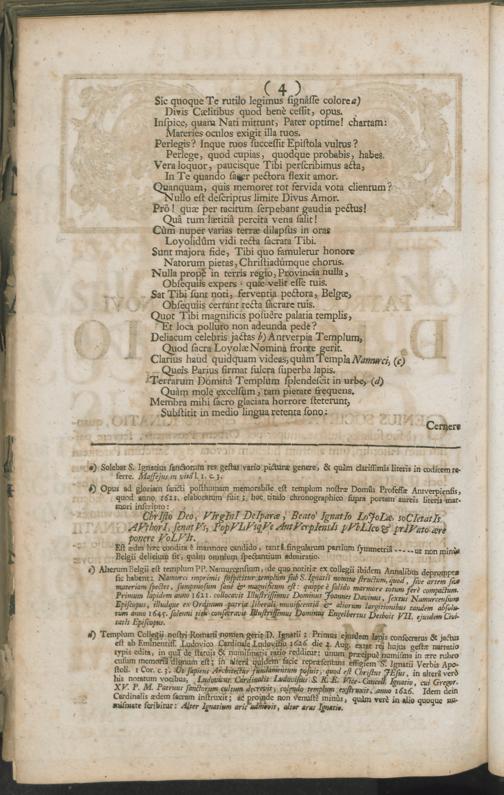 ( 4 )
Sic quoque Te rutilo legimus signâsse colore a)
Divis Cælitibus quod benè cessit, opus.
Inspice, quam Nati mittunt, Pater optime! chartam:
Materies oculos exigit illa tuos.
Perlegis? Inque tuos successit Epistola vultus?
Perlege, quod cupias, quodque probabis, habes.
Vera loquor, paucisque Tibi perscribimus acta,
In Te quando sacer pectora flexit amor.
Quanquam, quis memoret tot fervida vota clientum?
Nullo est descriptus limite Divus Amor.
Prô! quæ per tacitum serpebant gaudia pectus!
Quâ tum lætitiâ percita vena salit!
Cùm nuper varias terræ dilapsus in oras
Loyolidûm vidi tecta sacrata Tibi.
Sunt majora fide, Tibi quo famuletur honore
Natorum pietas, Christiadúmque chorus.
Nulla propè in terris regio, Provincia nulla,
Obsequiis expers quæ velit esse tuis.
Sat Tibi sunt noti, ferventia pectora, Belgæ,
Obsequiis certant tecta sacrare tuis.
Quot Tibi magnificis posuêre palatia templis,
Et loca polluto non adeunda pede?
Deliacum celebris jactas b) Antverpia Templum,
Quod sacra Loyolæ Nomina fronte gerit.
Clarius haud quidquam videas, quàm Templa Namurci, (c)
Queîs Parius firmat fulcra superba lapis.
Terrarum Dominâ Templum splendescit in urbe, (d)
Quàm mole excelsum, tam pietate frequens.
Membra mihi sacro glaciata horrore steterunt,
Substitit in medio lingua retenta sono:
Cernere
a) Solebat S. Ignatius sanctorum res gestas vario picturæ genere, & quàm clarissimis literis in codicem re-
ferre. Maffejus in vitâ l. 1. c. 3.
b) Opus ad gloriam sancti posthumam memorabile est templum nostræ Domûs Professæ Antverpiensis,
quod anno 1621. elaboratum fuit; hoc titulo chronographico supra portam aureis literis mar-
mori inscripto:
ChrIsto Deo, VIrgInI DeIparæ, Beato IgnatIo LoJoLæ soCIetatIs
AVthorI, senatVs, PopVLVsqVe AntVerpIensIs pVbLICo & prIVato ære
ponere VoLVIt.
Est ædes hæc condita è marmore candido, tantâ singularum partium symmetriâ ---- ut non minùs
Belgii deliciæ sit, quàm omnium spectantium admiratio.
c) Alterum Belgii est templum PP. Namurcensium, de quo notitiæ ex collegii ibidem Annalibus depromptæ
sic habent: Namurci imprimis suspicitur templum sub S. Ignatii nomine structum, quod, sive artem sive
materiam spectes, sumptuosum sanè & magnificum est: quippe è solido marmore totum ferè compactum.
Primum lapidem anno 1621. collocavit Illustrissimus Dominus Joannes Davinus, sextus Namurcensium
Episcopus, illudque ex Ordinum patriæ liberali munificentiâ & aliorum largitionibus tandem absolu-
tum anno 1645. solenni ritu consecravit Illustrissimus Dominus Engelbertus Desbois VII. ejusdem Civi-
tatis Episcopus.
d) Templum Collegii nostri Romani nomen gerit D. Ignatii: Primus ejusdem lapis consecratus & jactus
est ab Eminentiss. Ludovico Cardinale Ludovisio die 2. Aug. 1626 quæ extat rei hujus gestæ narratio
typis edita, in quâ de statuis & numismatis ratio redditur: unum præcipuè numisma in ære rubro
cusum memoriâ dignum est; in alterâ quidem facie repræsentans effigiem S. Ignatii Verbis Apo-
stoli. 1 Cor. c. 3. Ut sapiens Architectus fundamentum posuit, quod est Christus JEsus, in alterâ verò
his notatum vocibus, Ludovicus Cardinalis Ludovisius S. R. E. Vice-Cancell. Ignatio, cui Gregor.
XV. P. M. Patruus sanctorum cultum decrevit, solenda templum exstruxit, anno 1626. Idem dein
Cardinalis ædem sacram instruxit; ac proinde non venustè minùs, quàm verè in alio quoque nu-
mismate scribitur: Alter Ignatium aris admovit, alter aras Ignatio.